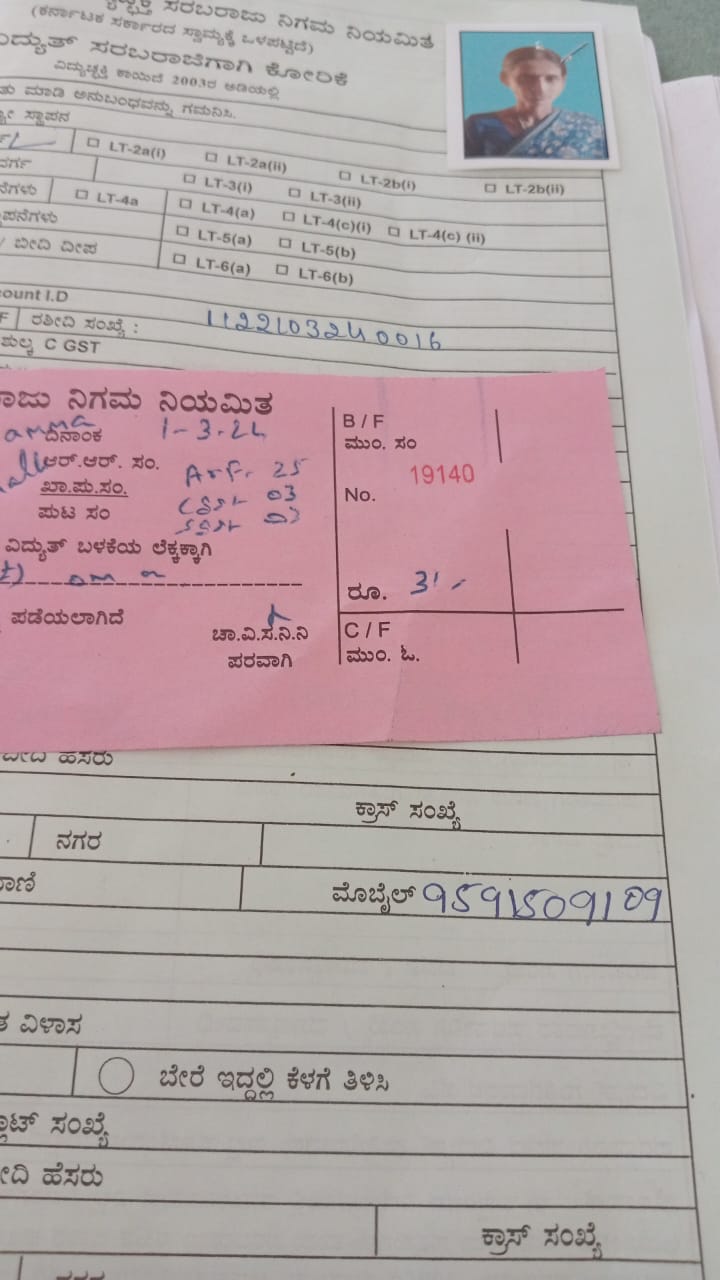 ಸರಬರಾಜು ನಿಗಮ ನಿಯಮಿತ
(ಕರ್ನಾಟಕ ಸರ್ಕಾರದ ಸ್ವಾಮ್ಯಕ್ಕೆ ಒಳಪಟ್ಟಿದೆ)
ವಿದ್ಯುತ್ ಸರಬರಾಜಿಗಾಗಿ ಕೋರಿಕೆ
ವಿದ್ಯುಚ್ಛಕ್ತಿ ಕಾಯಿದೆ 2003ರ ಅಡಿಯಲ್ಲಿ
ಮಾಡಿ ಅನುಬಂಧವನ್ನು ಗಮನಿಸಿ.
ಸ್ಥಾಪನ
LT-2a(i) LT-2a(ii) LT-2b(i) LT-2b(ii)
ವರ್ಗ LT-3(i) LT-3(ii)
LT-4a LT-4(a) LT-4(c)(i) LT-4(c) (ii)
LT-5(a) LT-5(b)
/ ಬೀದಿ ದೀಪ LT-6(a) LT-6(b)
ount I.D
F ರಶೀದಿ ಸಂಖ್ಯೆ : 1122103240016
ಶುಲ್ಕ C GST
ರಾಜು ನಿಗಮ ನಿಯಮಿತ
ದಿನಾಂಕ 1-3-24
B / F
ಮುಂ. ಸಂ
ಆರ್.ಆರ್. ಸಂ. 25
ಖಾ.ಪು.ಸಂ. CGST 03
No. 19140
ಪುಟ ಸಂ SGST 03
ವಿದ್ಯುತ್ ಬಳಕೆಯ ಲೆಕ್ಕಕ್ಕಾಗಿ
ರೂ. 31-
ಪಡೆಯಲಾಗಿದೆ
ಚಾ.ವಿ.ಸ.ನಿ.ನಿ
ಪರವಾಗಿ
C / F
ಮುಂ. ಓ.
ಹೆಸರು
ಕ್ರಾಸ್ ಸಂಖ್ಯೆ
ನಗರ
ಮೊಬೈಲ್ 9591509109
ವಿಳಾಸ
ಬೇರೆ ಇದ್ದಲ್ಲಿ ಕೆಳಗೆ ತಿಳಿಸಿ
ಸಂಖ್ಯೆ
ಹೆಸರು
ಕ್ರಾಸ್ ಸಂಖ್ಯೆ